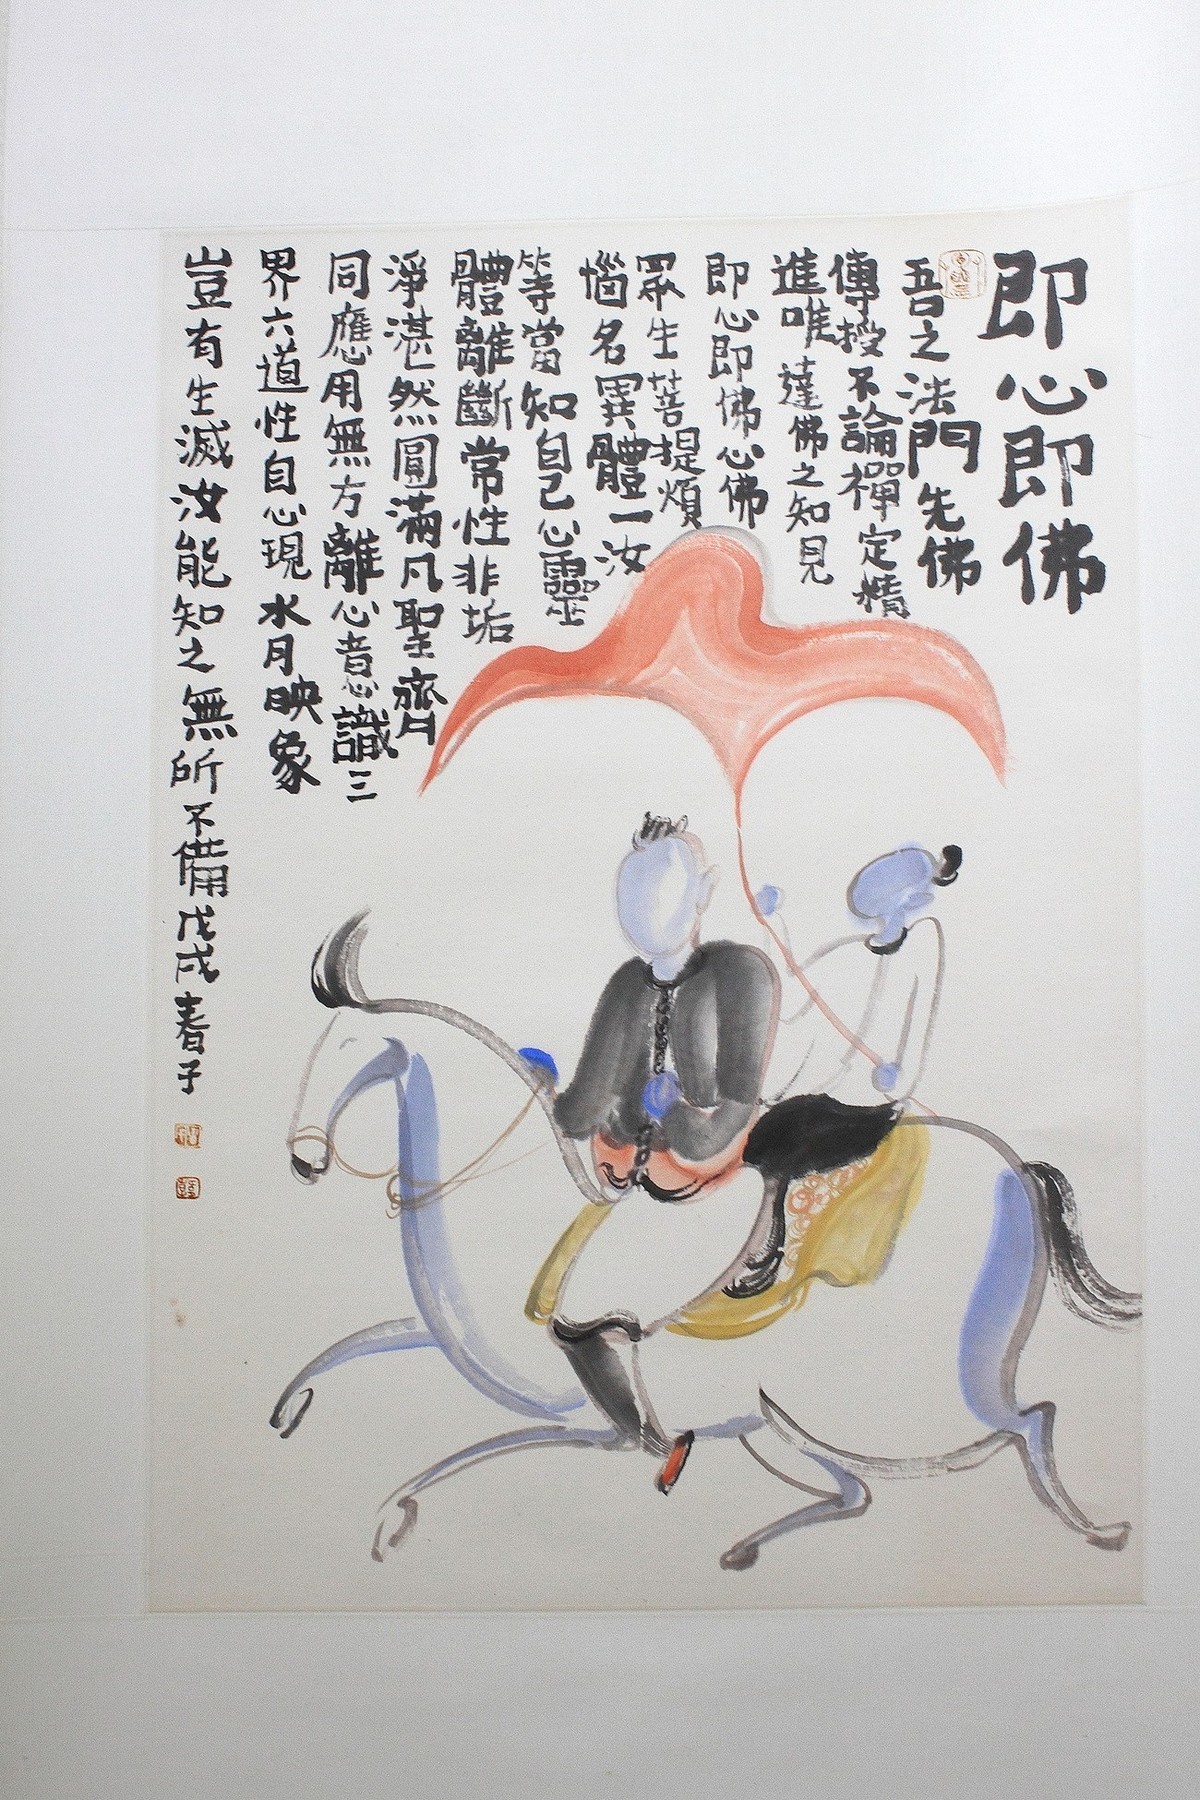 即心即佛
吾之法門先佛
傳授不論禪定精
進唯達佛之知見
即心即佛心佛
眾生菩提煩
惱名異體一汝
等當知自己心靈
體離斷常性非垢
淨湛然圓滿凡聖齊
同應用無方離心意識三
界六道性自心現水月映象
豈有生滅汝能知之無所不備戊戌春子